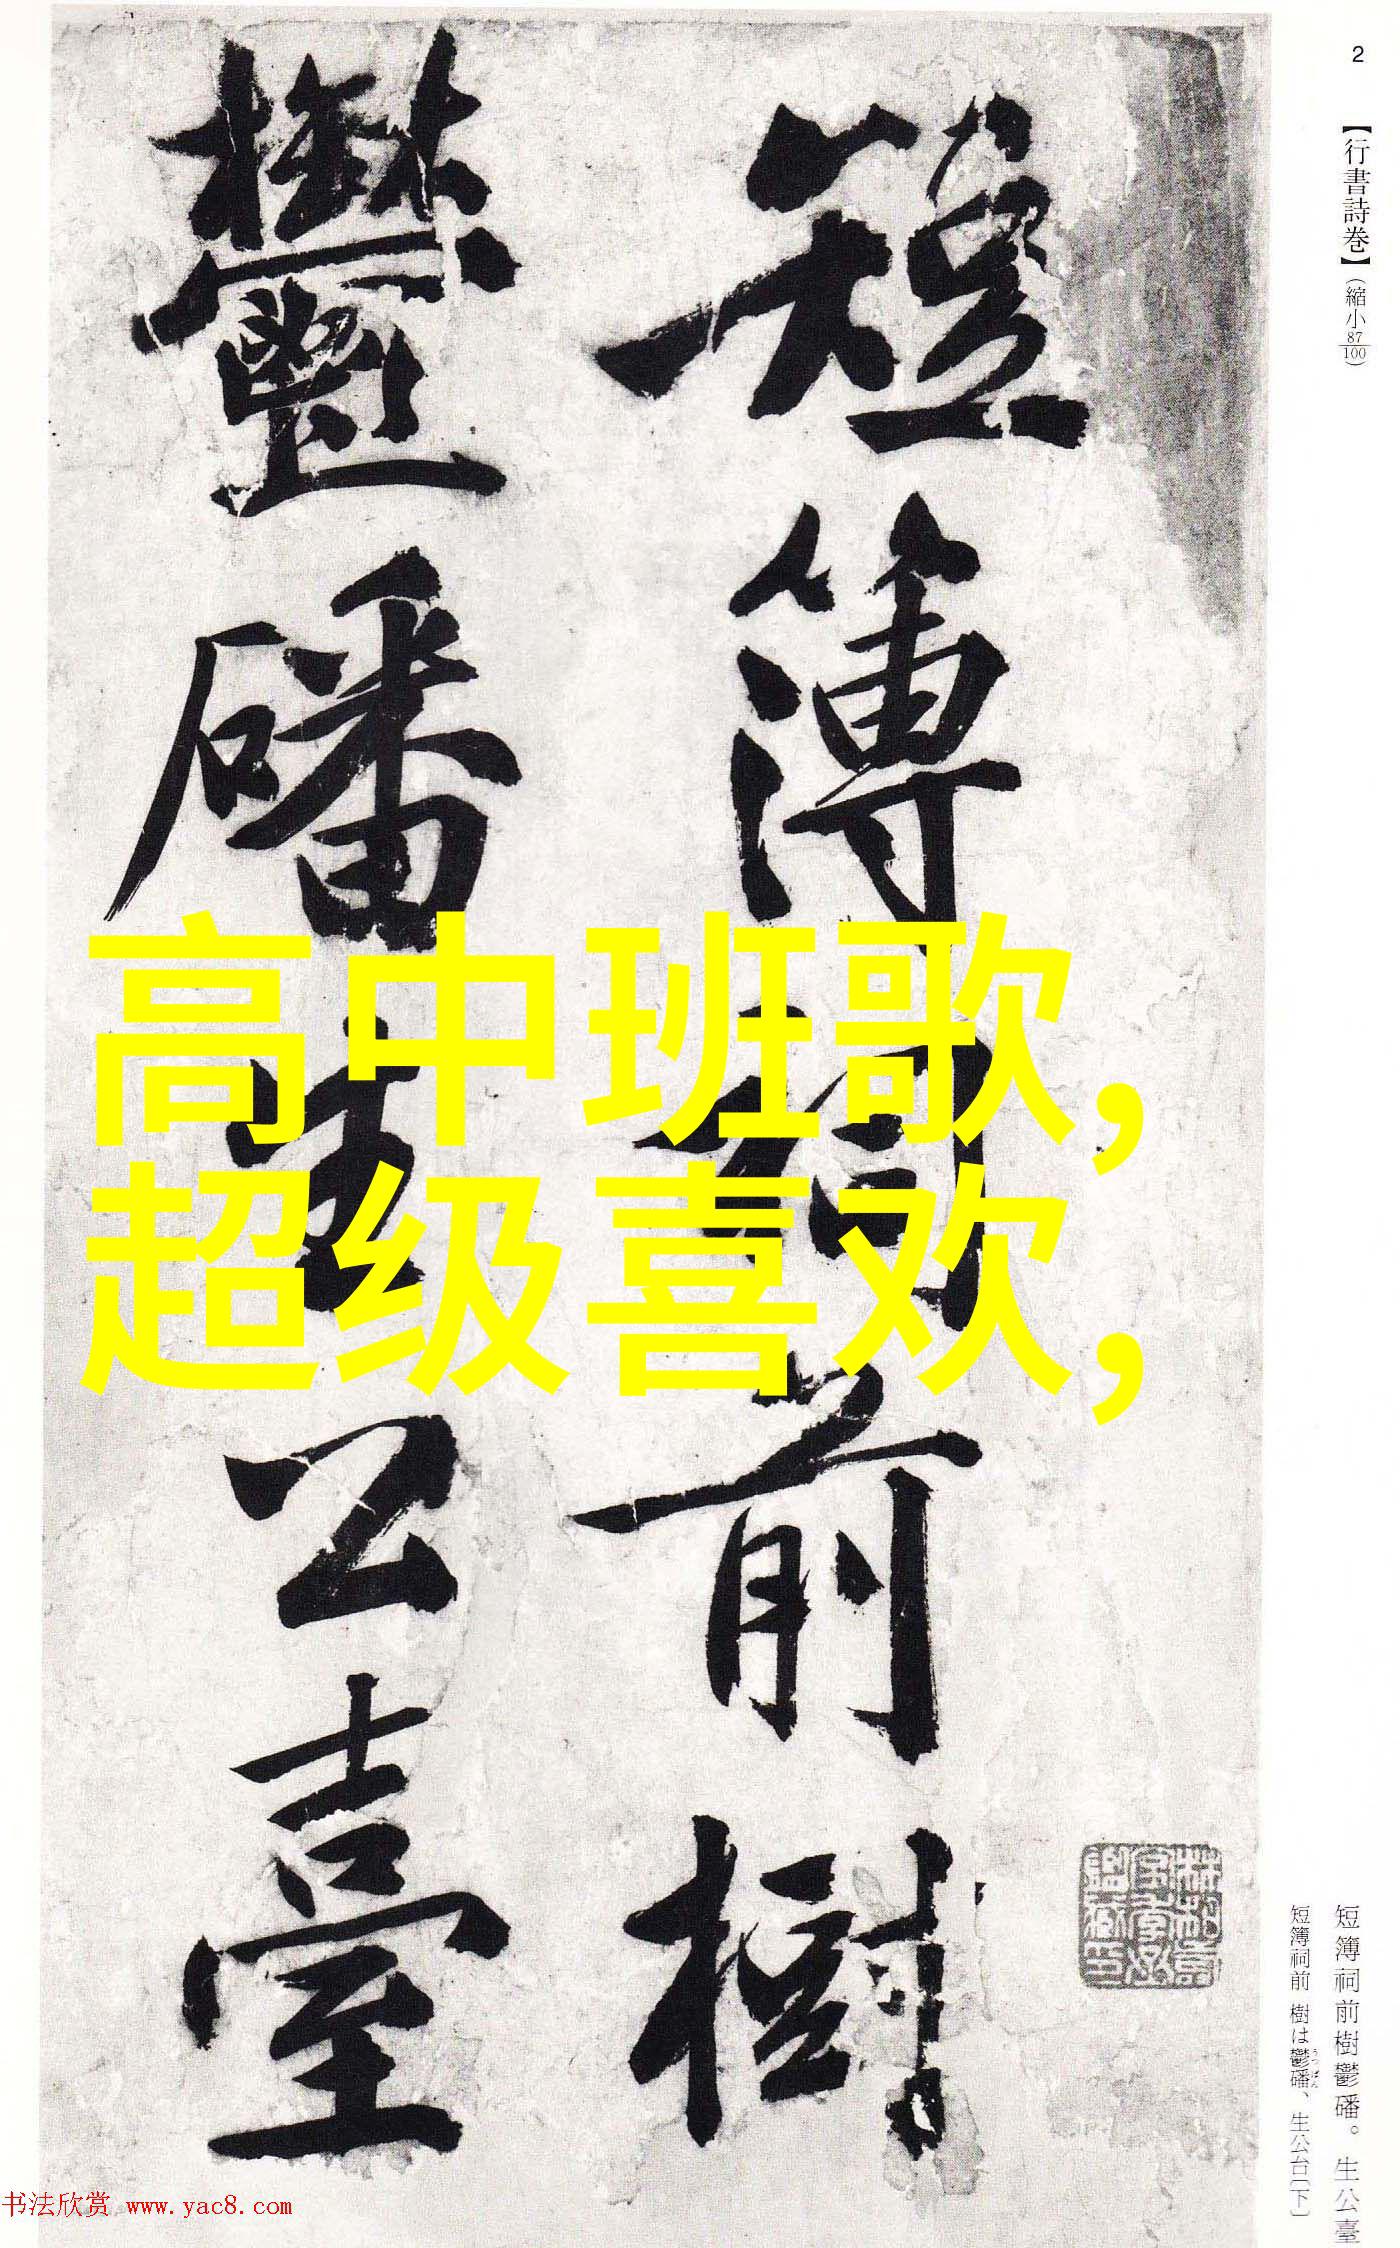 2
【行書詩巻】(縮小87/100)
短簿祠前樹
鬱磻
生公臺
高中班歌,
超级喜欢,
短簿祠前樹鬱磻。生公臺
短簿祠前 樹は鬱磻、生公台〔下〕
うつばん
书法欣赏 www.yac8.com